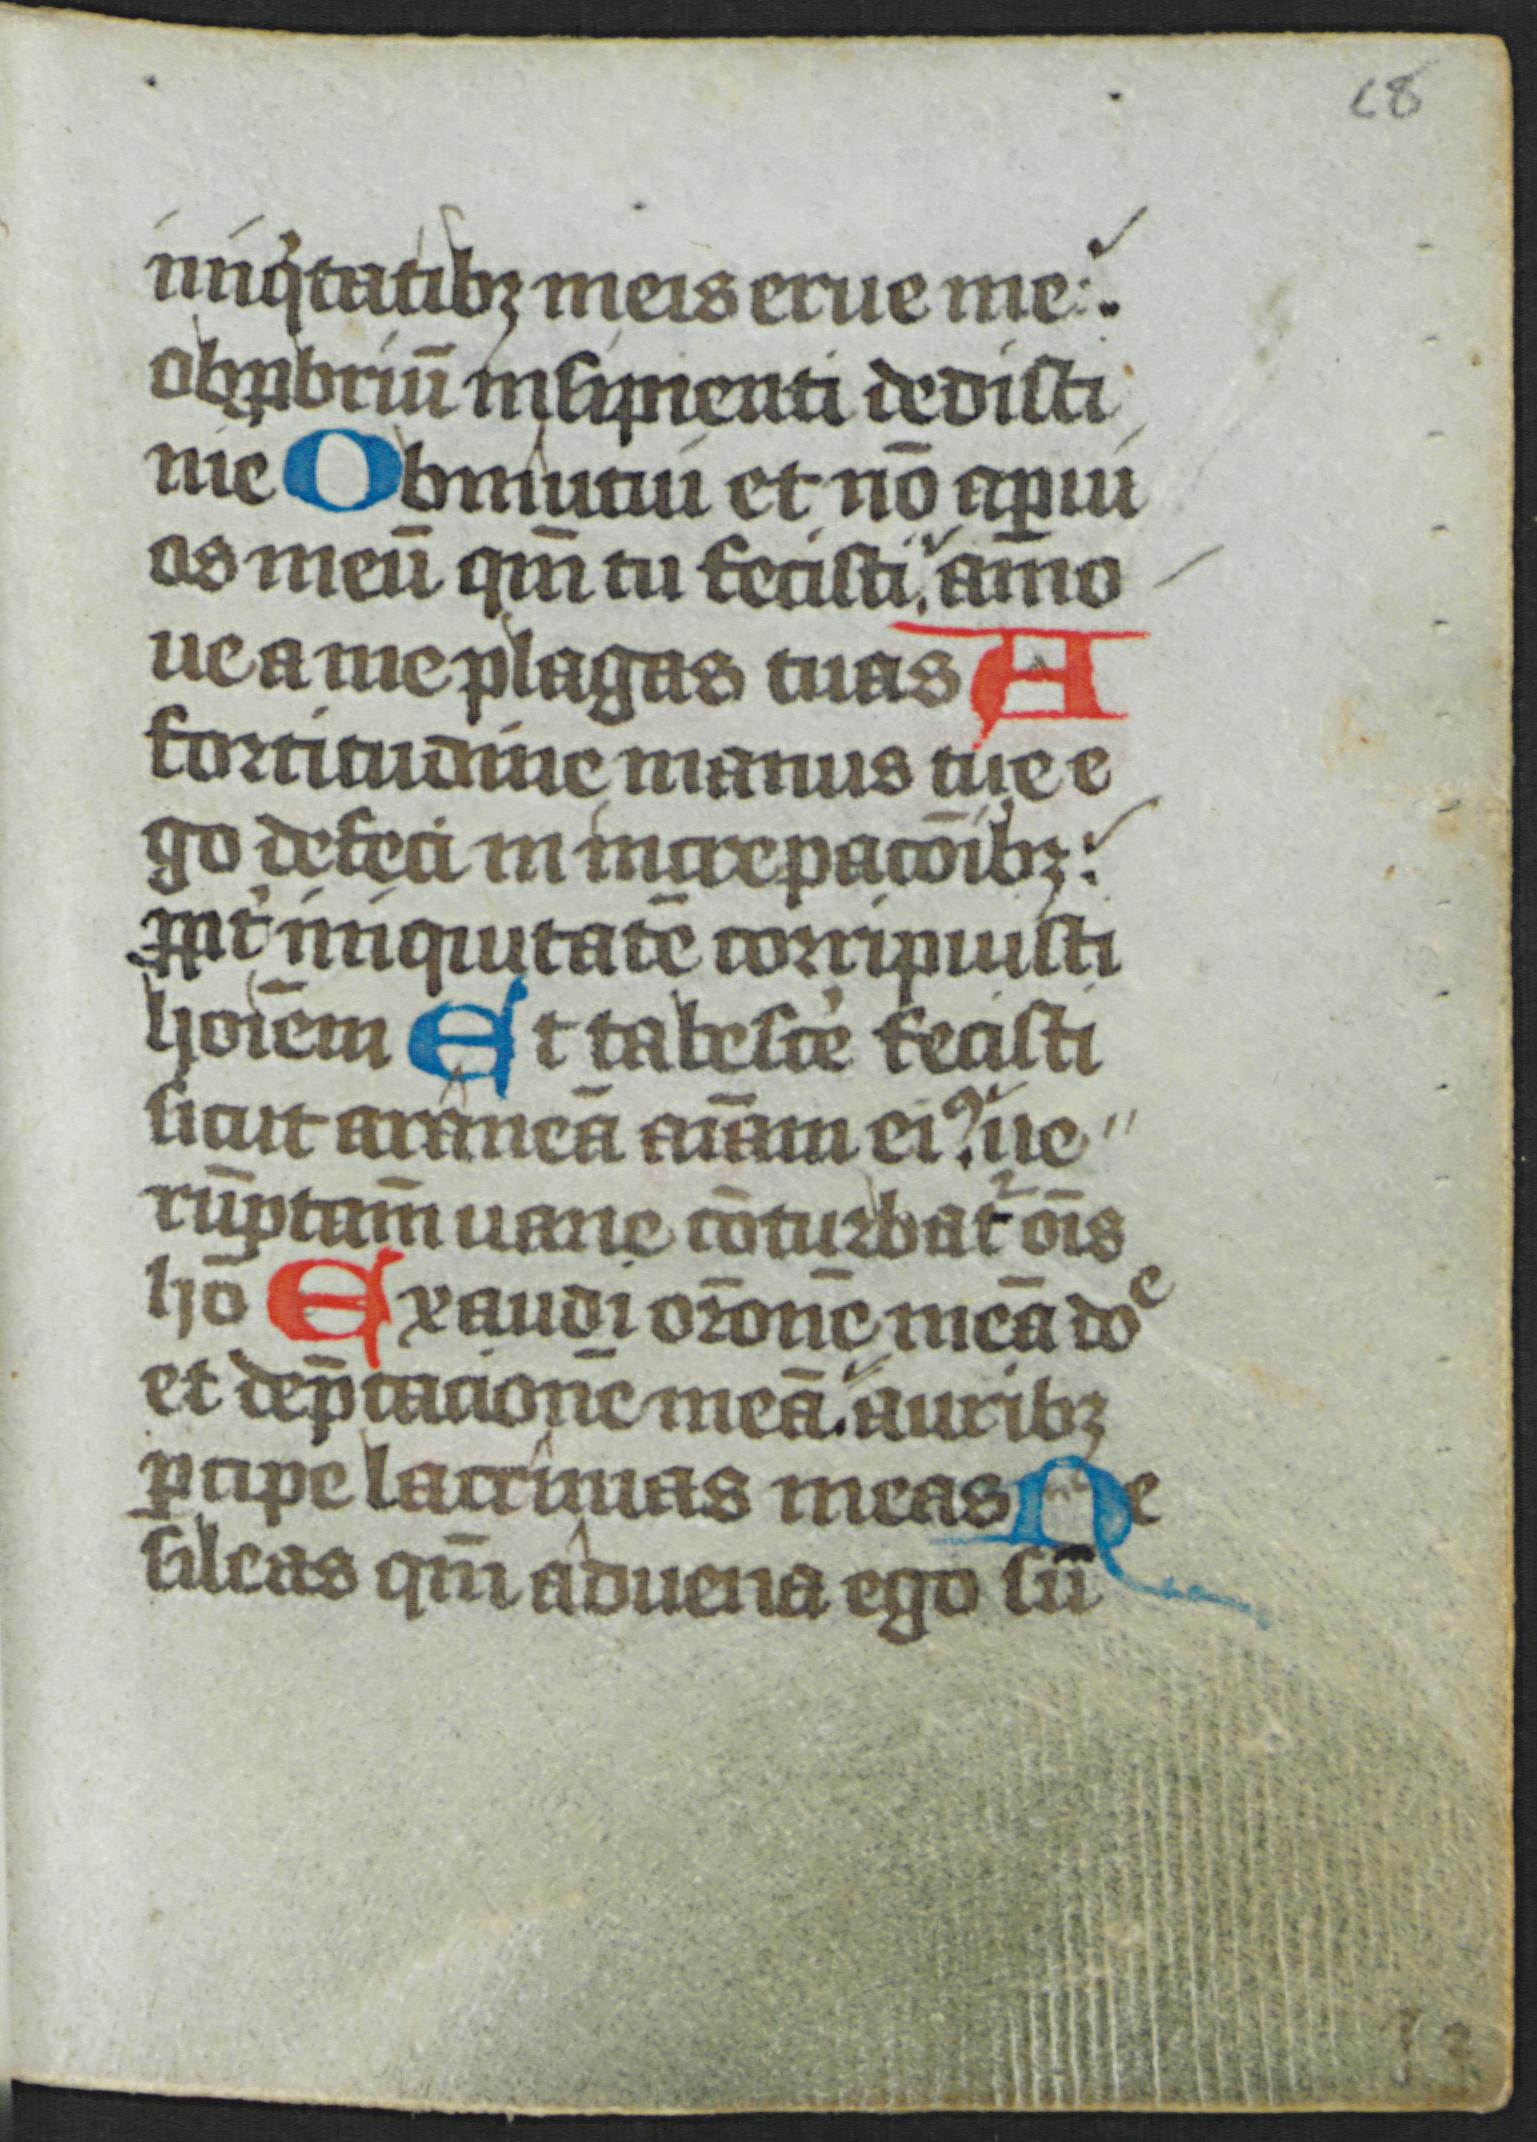 68
iniq̍tatibꝫ meis erue me:
obp̱briū insipienti dedisti
me Obmutui et nō aꝑui
os meū qm̄ tu fecisti. amo
ue a me plagas tuas A
fortitudine manus tue e
go defeci in increpacōibꝫ:
ꝓpt̍ iniquitatē corripuisti
hoiēm Et tabesce̍ fecisti
sicut araneā aīam eiꝰ. ue
rūptam̄ uane cōturbat᷑ oīs
hō Exaudi orōnē meā doᵉ
et dep̄cacionē meā. auribꝫ
ꝑcipe lacrimas meas Ne
sileas qm̄ aduena ego sū